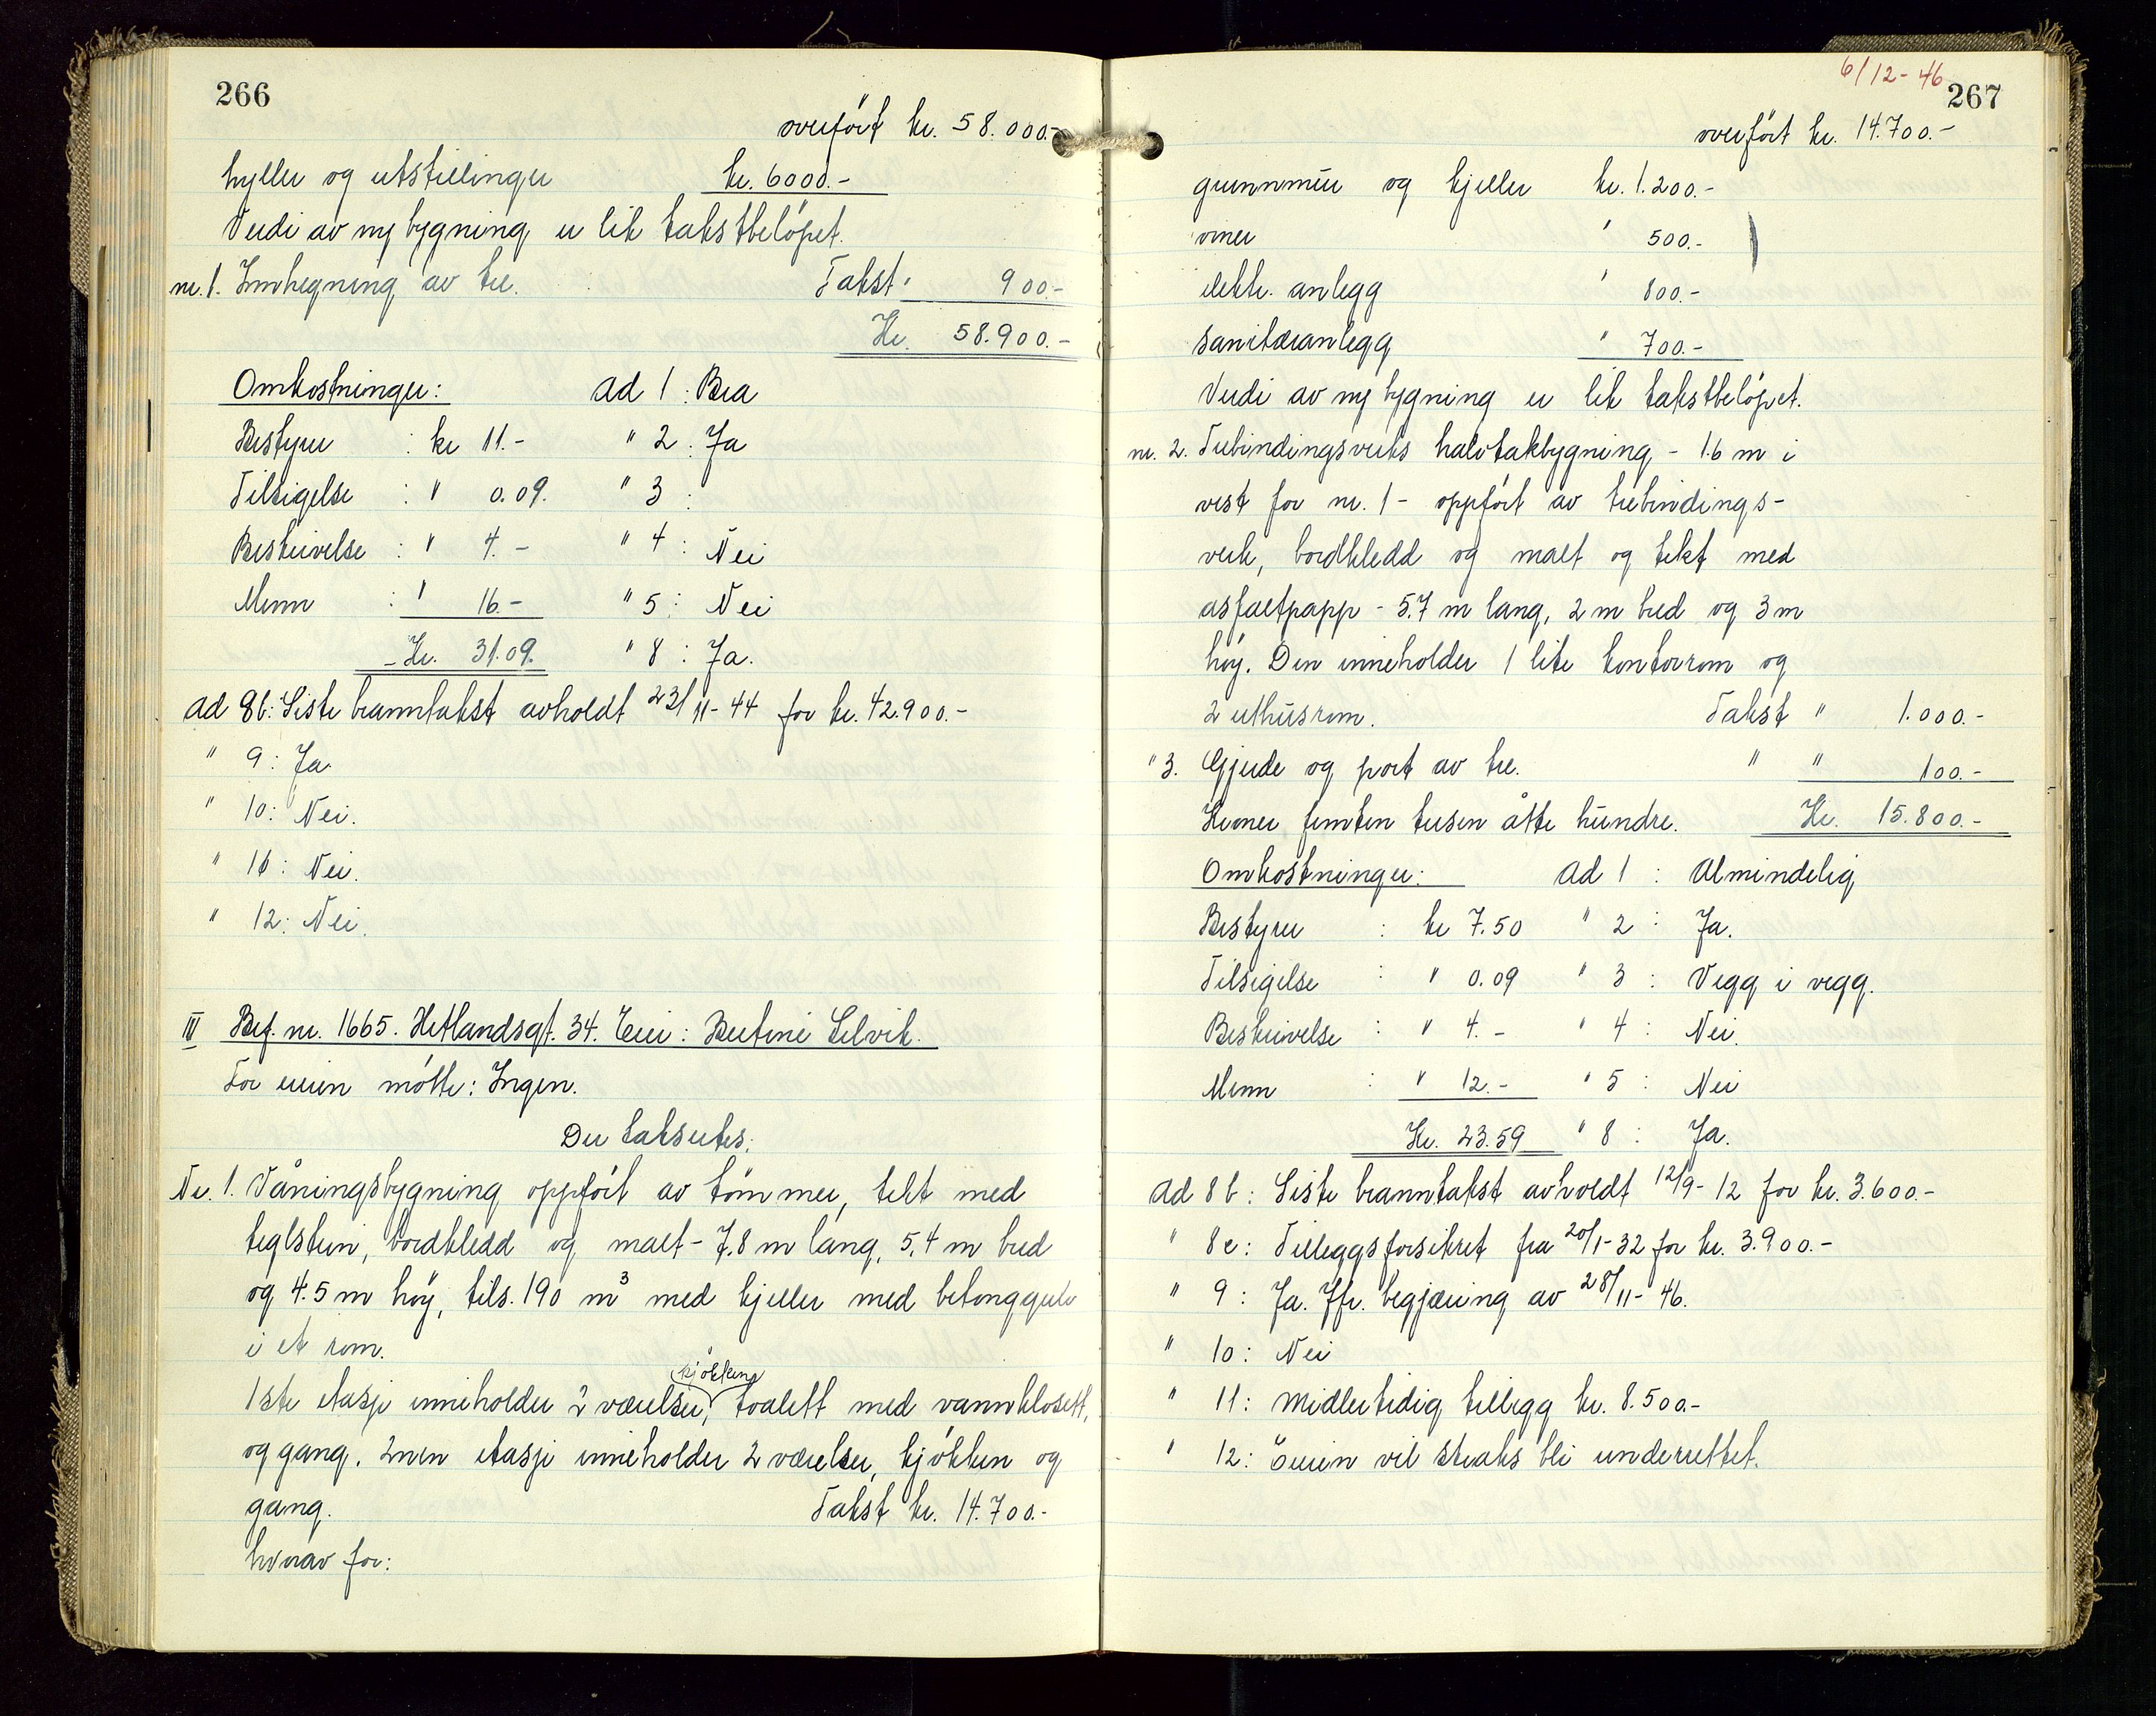 266
overført kr. 58.000.-
hyller og utstillinger kr. 6000.-
Verdi av ny bygning er lik takstbeløpet.
nr. 1. Innhegning av tre. Takst " 900.-
Kr. 58.900.-
Omkostninger: ad 1 : Bra
Bestyrer : kr 11.- " 2 : Ja
Tilsigelse : " 0.09. " 3 :
Beskrivelse : " 4.- " 4 : Nei
Menn : " 16.- " 5 : Nei
Kr. 31.09. " 8 : Ja.
ad 8b: Siste branntakst avholdt 23/11-44 for kr. 42.900.-
" 9 : Ja
" 10 : Nei.
" 11 : Nei.
" 12 : Nei.
III Brf. nr. 1665. Hetlandsgt. 34. Eier: Bertine Selvik.
For eieren møtte: Ingen.
Der takseres:
Nr. 1. Våningsbygning oppført av tömmer, tekt med
teglstein, bordkledd og malt - 7.8 m lang, 5.4 m bred
og 4.5 m höy, tils. 190 m³ med kjeller med betonggulv
i et rom.
kjökken,
1ste etasje inneholder 2 værelser, toalett med vannklosett,
og gang. 2nen etasje inneholder 2 værelser, kjøkken og
gang. Takst kr. 14.700.-
hvorav for:
6/12-46
267
overført kr. 14.700.-
grunnmur og kjeller kr. 1.200.-
ovner " 500.-
elektr. anlegg " 800.-
sanitæranlegg " 700.-
Verdi av ny bygning er lik takstbeløpet.
nr. 2. Trebindingsverks halvtakbygning - 1.6 m i
vest for nr. 1 - oppført av trebindings-
verk, bordkledd og malt og tekt med
asfaltpapp - 5.7 m lang, 2 m bred og 3 m
höy. Den inneholder 1 lite kontorrom og
2 uthusrom. Takst " 1.000.-
" 3. Gjerde og port av tre. " " 100.-
Kroner femten tusen åtte hundre. Kr. 15.800.-
Omkostninger: ad 1 : Almindelig
Bestyrer : kr 7.50 " 2 : Ja.
Tilsigelse : " 0.09 " 3 : Vegg i vegg.
Beskrivelse : " 4.- " 4 : Nei.
Menn : " 12.- " 5 : Nei
Kr. 23.59 " 8 : Ja.
ad 8 b : Siste branntakst avholdt 12/9-12 for kr. 3.600.-
" 8 c : Tilleggsforsikret fra 20/1-32 for kr. 3.900.-
" 9 : Ja. Jfr. begjæring av 28/11-46.
" 10 : Nei
" 11 : Midlertidig tillegg kr. 8.500.-
" 12 : Eieren vil straks bli underrettet.